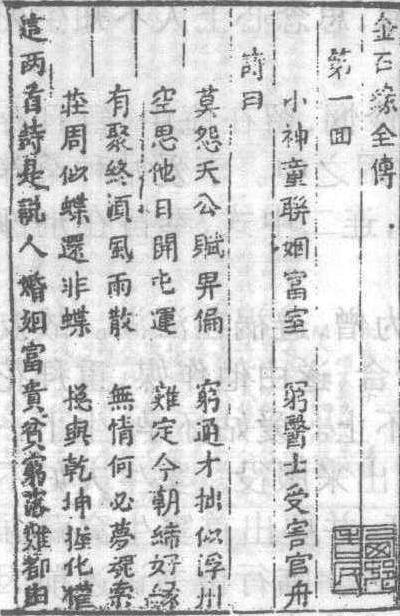 金石緣全傳
第一回
小神童聯姻富室　窮醫士受害官舟
詩曰
莫怨天公賦畀偏　窮通才拙似浮州
空思他日開屯運　難定今朝締好緣
有聚終須風雨散　無情何必夢魂牽
莊周似蝶還非蝶　總與乾坤握化權
這两首詩是説人婚姻富貴貧窮落難都由